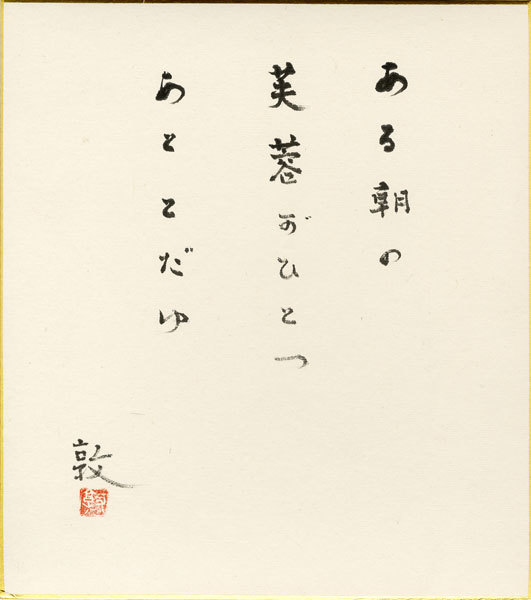 ある朝の
芙蓉がひとつ
あととだゆ
敦